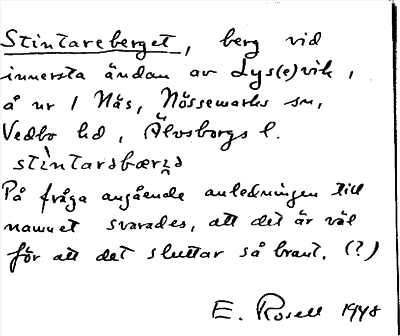 Stintareberget, berg vid
innersta ändan av Lys(e)vik,
å nr 1 Näs, Nössemarks sn,
Vedbo hd, Älvsborgs l.
stìntarsbærı̨s
På fråga angående anledningen till
namnet svarades, att det är väl
för att det sluttar så brant. (?)
E. Rosell 1948